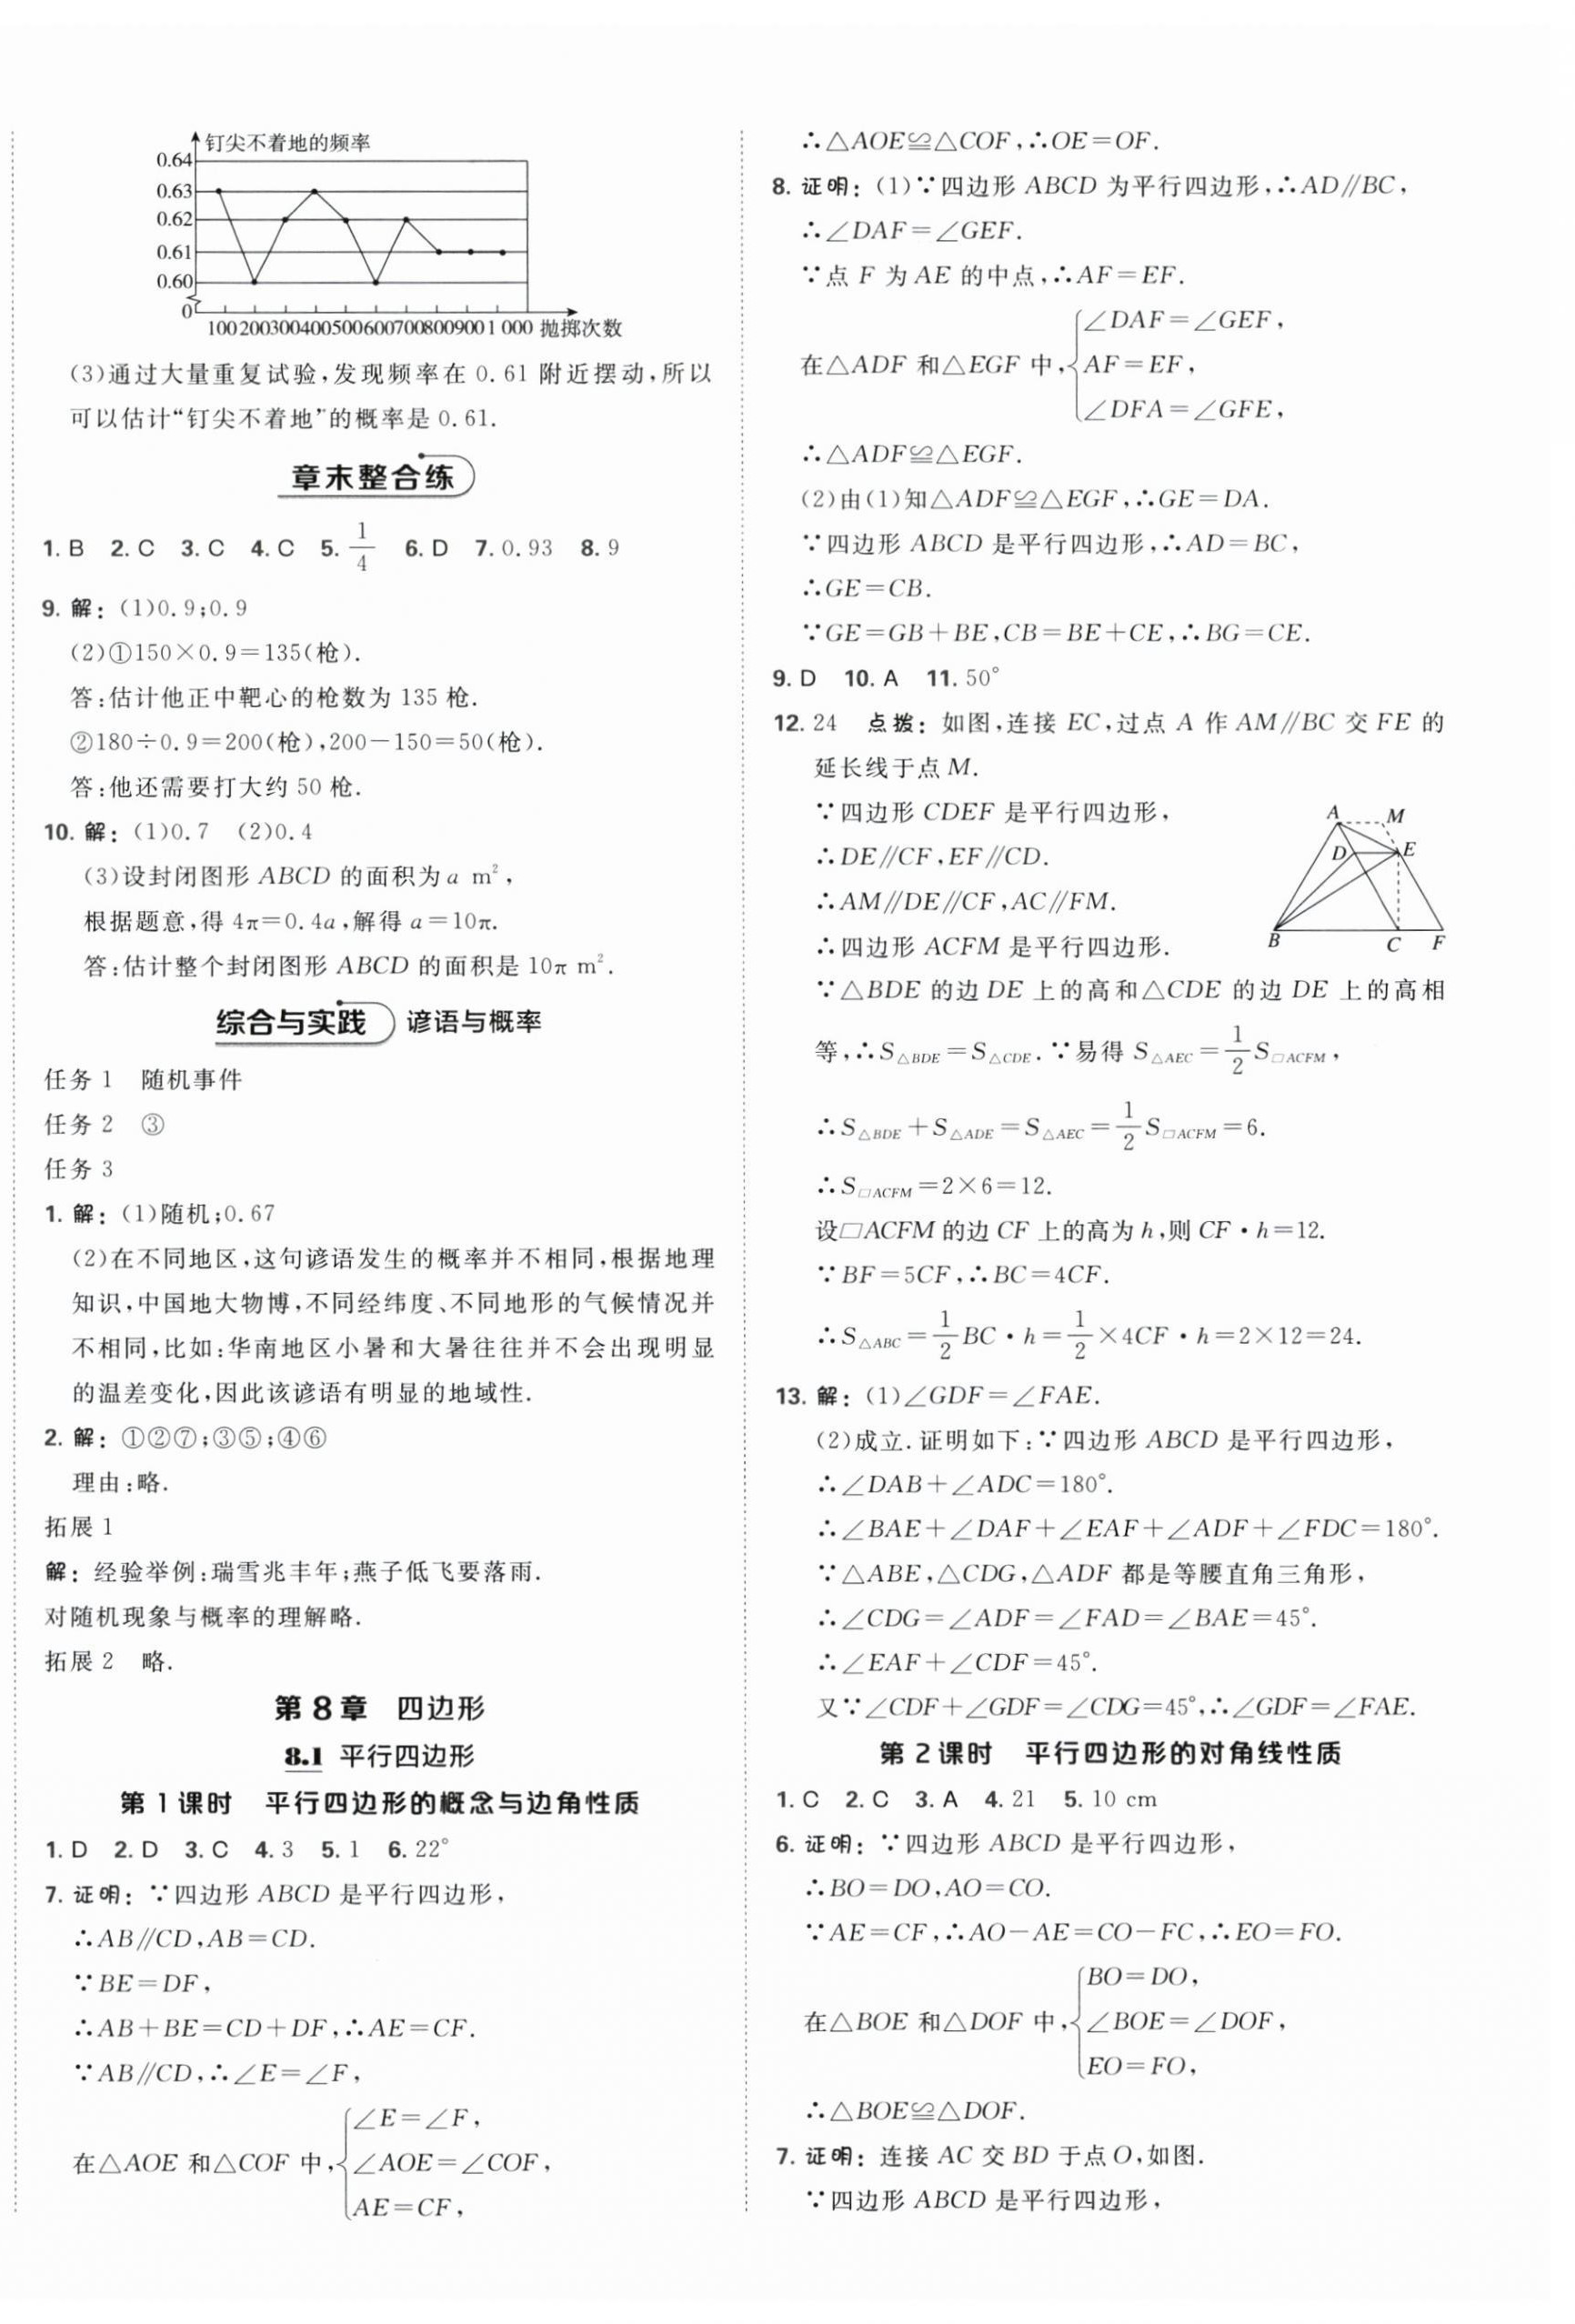 钉尖不着地的频率
0.64
0.63
0.62
0.61
0.60
0
100 200 300 400 500 600 700 800 900 1 000 抛掷次数
(3)通过大量重复试验,发现频率在 0.61 附近摆动,所以
可以估计“钉尖不着地”的概率是 0.61.
章末整合练
1. B 2. C 3. C 4. C 5. 1/4 6. D 7. 0.93 8. 9
9. 解:(1)0.9;0.9
(2)①150×0.9=135(枪).
答:估计他正中靶心的枪数为 135 枪.
②180÷0.9=200(枪),200-150=50(枪).
答:他还需要打大约 50 枪.
10. 解:(1)0.7 (2)0.4
(3)设封闭图形 ABCD 的面积为 a m²,
根据题意,得 4π=0.4a,解得 a=10π.
答:估计整个封闭图形 ABCD 的面积是 10π m².
综合与实践 谚语与概率
任务 1 随机事件
任务 2 ③
任务 3
1. 解:(1)随机;0.67
(2)在不同地区,这句谚语发生的概率并不相同,根据地理
知识,中国地大物博,不同经纬度、不同地形的气候情况并
不相同,比如:华南地区小暑和大暑往往并不会出现明显
的温差变化,因此该谚语有明显的地域性.
2. 解:①②⑦;③⑤;④⑥
理由:略.
拓展 1
解:经验举例:瑞雪兆丰年;燕子低飞要落雨.
对随机现象与概率的理解略.
拓展 2 略.
第 8 章 四边形
8.1 平行四边形
第 1 课时 平行四边形的概念与边角性质
1. D 2. D 3. C 4. 3 5. 1 6. 22°
7. 证明:∵四边形 ABCD 是平行四边形,
∴AB∥CD,AB=CD.
∵BE=DF,
∴AB+BE=CD+DF,∴AE=CF.
∵AB∥CD,∴∠E=∠F,
在△AOE 和△COF 中,{∠E=∠F,
∠AOE=∠COF,
AE=CF,
∴△AOE≌△COF,∴OE=OF.
8. 证明:(1)∵四边形 ABCD 为平行四边形,∴AD∥BC,
∴∠DAF=∠GEF.
∵点 F 为 AE 的中点,∴AF=EF.
在△ADF 和△EGF 中,{∠DAF=∠GEF,
AF=EF,
∠DFA=∠GFE,
∴△ADF≌△EGF.
(2)由(1)知△ADF≌△EGF,∴GE=DA.
∵四边形 ABCD 是平行四边形,∴AD=BC,
∴GE=CB.
∵GE=GB+BE,CB=BE+CE,∴BG=CE.
9. D 10. A 11. 50°
12. 24 点拨:如图,连接 EC,过点 A 作 AM∥BC 交 FE 的
延长线于点 M.
∵四边形 CDEF 是平行四边形,
∴DE∥CF,EF∥CD.
∴AM∥DE∥CF,AC∥FM.
∴四边形 ACFM 是平行四边形.
A M
D E
B C F
∵△BDE 的边 DE 上的高和△CDE 的边 DE 上的高相
等,∴S△BDE=S△CDE.∵易得 S△AEC=1/2 S▱ACFM,
∴S△BDE+S△ADE=S△AEC=1/2 S▱ACFM=6.
∴S▱ACFM=2×6=12.
设▱ACFM 的边 CF 上的高为 h,则 CF·h=12.
∵BF=5CF,∴BC=4CF.
∴S△ABC=1/2 BC·h=1/2×4CF·h=2×12=24.
13. 解:(1)∠GDF=∠FAE.
(2)成立.证明如下:∵四边形 ABCD 是平行四边形,
∴∠DAB+∠ADC=180°.
∴∠BAE+∠DAF+∠EAF+∠ADF+∠FDC=180°.
∵△ABE,△CDG,△ADF 都是等腰直角三角形,
∴∠CDG=∠ADF=∠FAD=∠BAE=45°.
∴∠EAF+∠CDF=45°.
又∵∠CDF+∠GDF=∠CDG=45°,∴∠GDF=∠FAE.
第 2 课时 平行四边形的对角线性质
1. C 2. C 3. A 4. 21 5. 10 cm
6. 证明:∵四边形 ABCD 是平行四边形,
∴BO=DO,AO=CO.
∵AE=CF,∴AO-AE=CO-FC,∴EO=FO.
在△BOE 和△DOF 中,{BO=DO,
∠BOE=∠DOF,
EO=FO,
∴△BOE≌△DOF.
7. 证明:连接 AC 交 BD 于点 O,如图.
∵四边形 ABCD 是平行四边形,